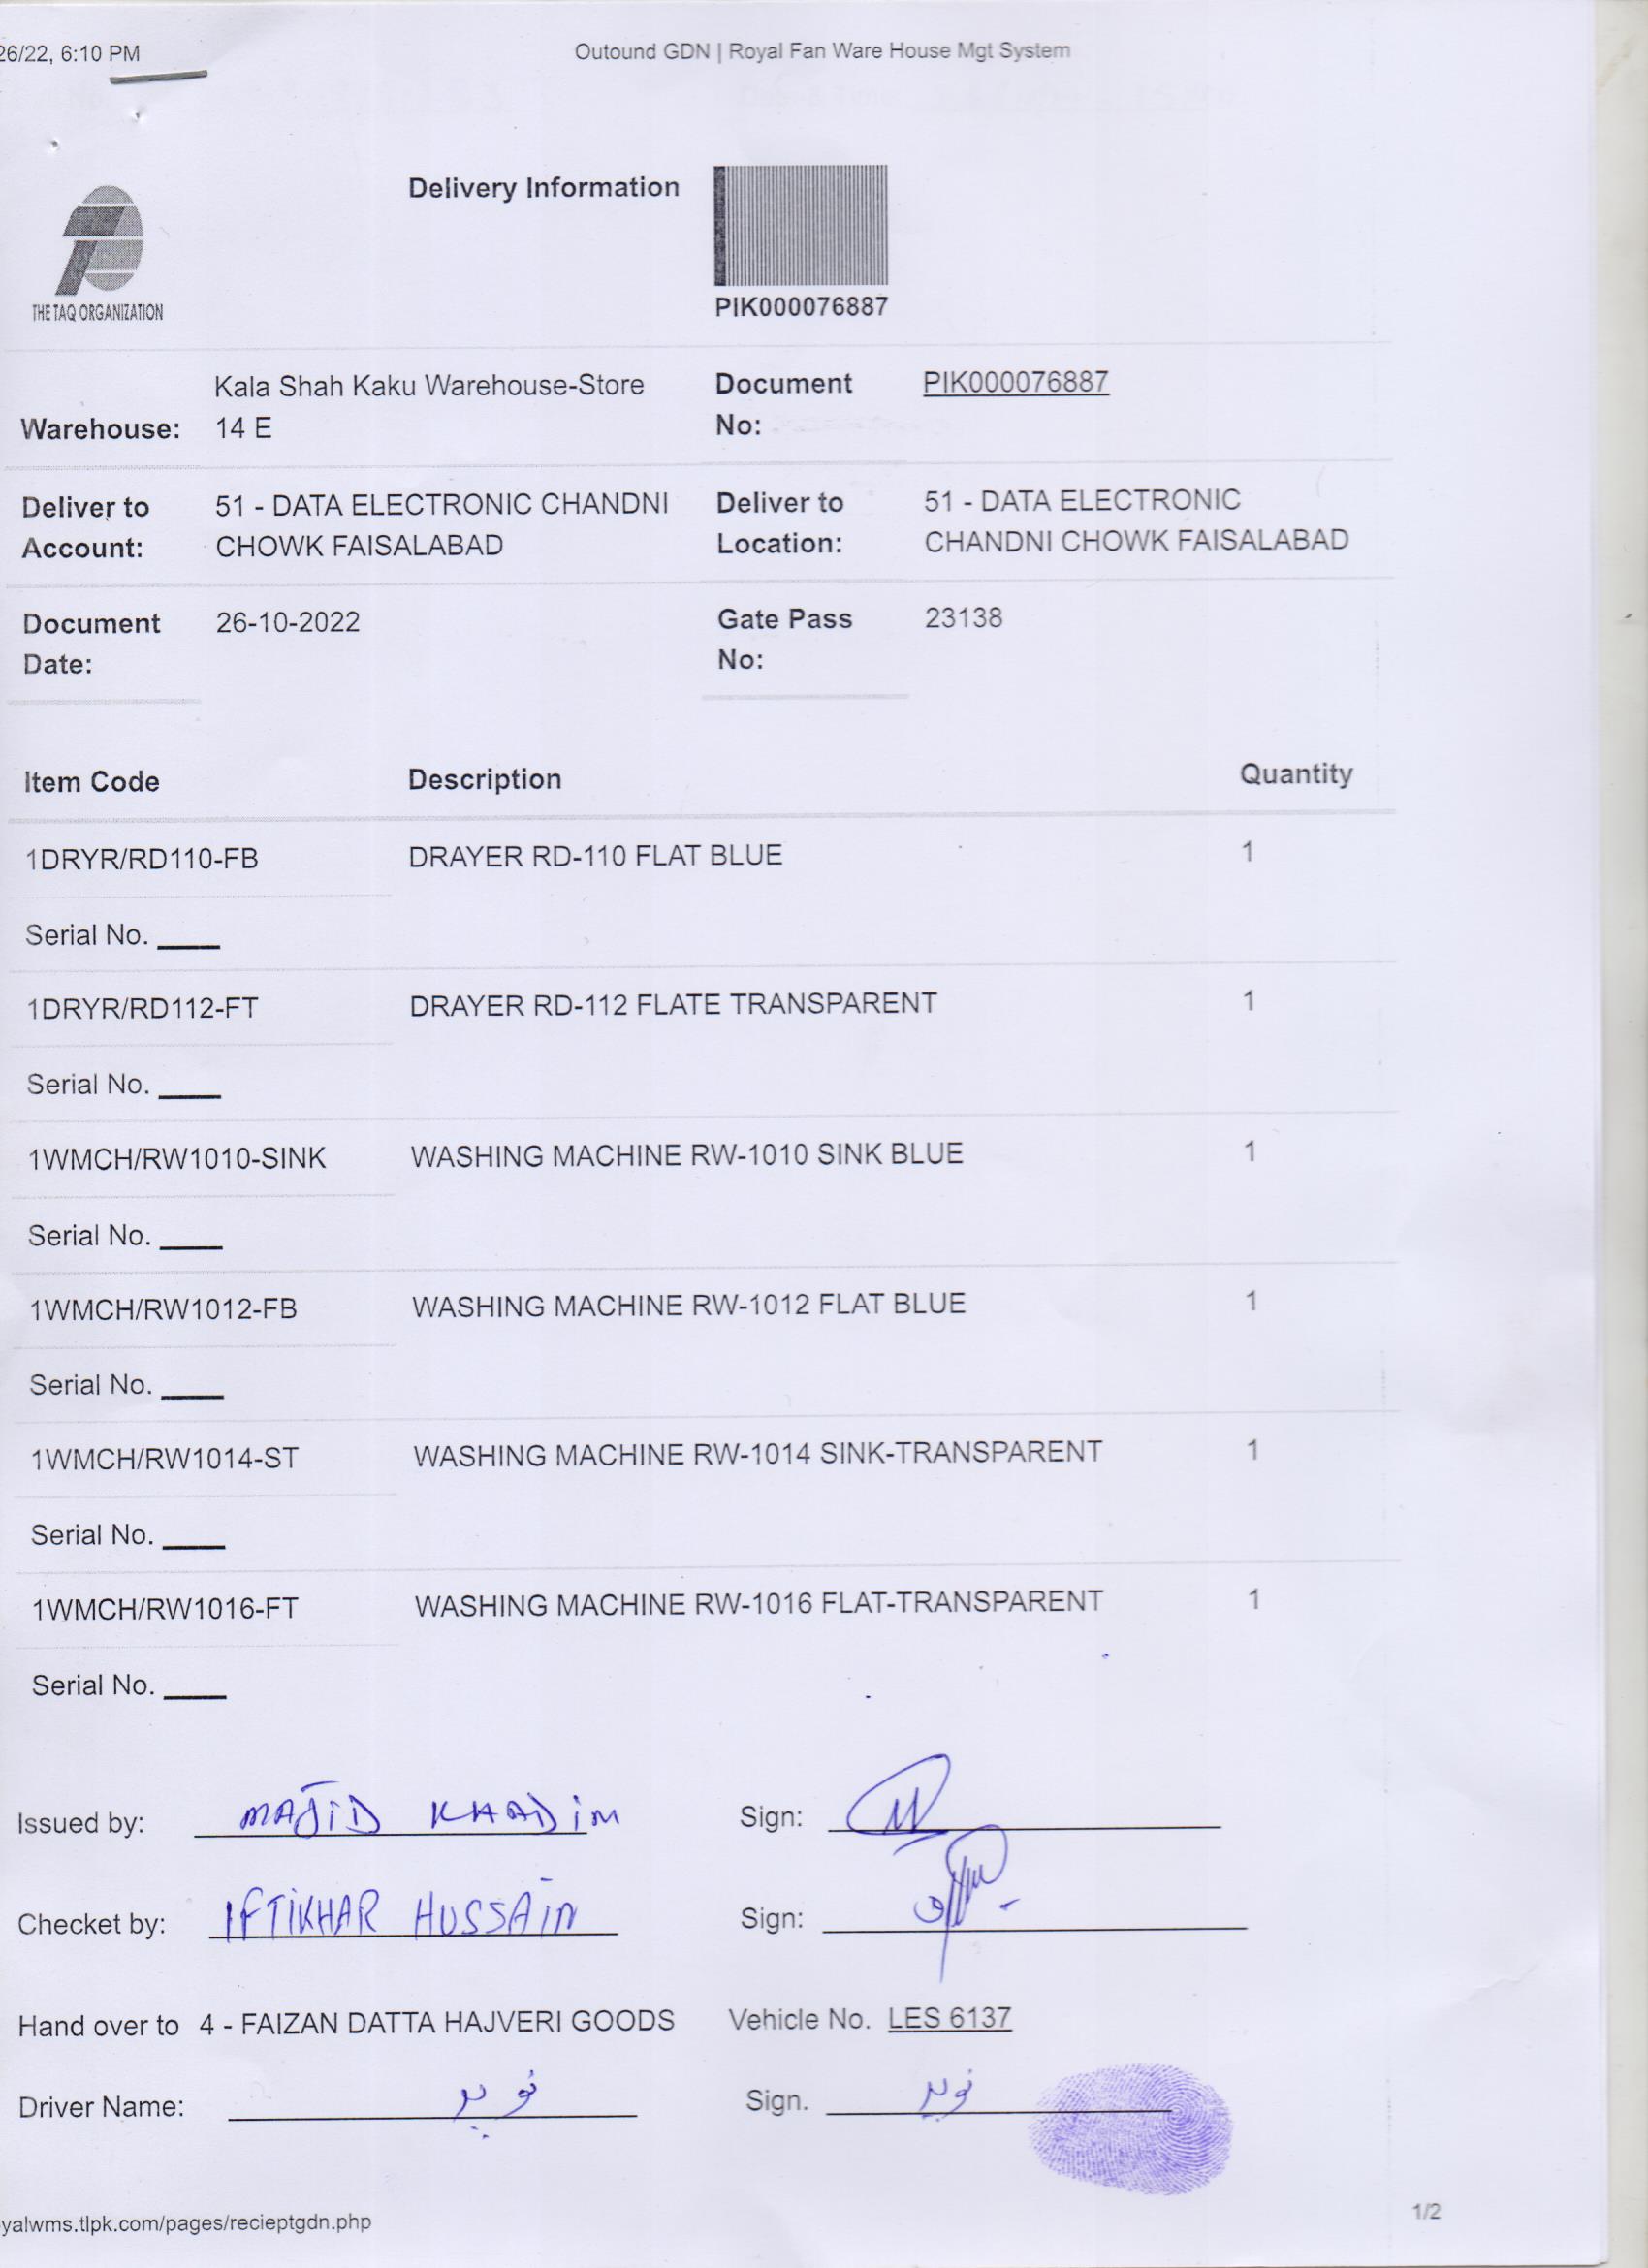 26/22, 6:10 PM
Outound GDN | Royal Fan Ware House Mgt System
THE TAQ ORGANIZATION
Delivery Information
PIK000076887
Warehouse: Kala Shah Kaku Warehouse-Store 14 E
Document No: PIK000076887
Deliver to Account: 51 - DATA ELECTRONIC CHANDNI CHOWK FAISALABAD
Deliver to Location: 51 - DATA ELECTRONIC CHANDNI CHOWK FAISALABAD
Document Date: 26-10-2022
Gate Pass No: 23138
Item Code Description Quantity
1DRYR/RD110-FB DRAYER RD-110 FLAT BLUE 1
Serial No. ____
1DRYR/RD112-FT DRAYER RD-112 FLATE TRANSPARENT 1
Serial No. ____
1WMCH/RW1010-SINK WASHING MACHINE RW-1010 SINK BLUE 1
Serial No. ____
1WMCH/RW1012-FB WASHING MACHINE RW-1012 FLAT BLUE 1
Serial No. ____
1WMCH/RW1014-ST WASHING MACHINE RW-1014 SINK-TRANSPARENT 1
Serial No. ____
1WMCH/RW1016-FT WASHING MACHINE RW-1016 FLAT-TRANSPARENT 1
Serial No. ____
Issued by: MAJID KHADIM Sign:
Checket by: IFTIKHAR HUSSAIN Sign:
Hand over to 4 - FAIZAN DATTA HAJVERI GOODS Vehicle No. LES 6137
Driver Name: نوید Sign. نوید
yalwms.tlpk.com/pages/recieptgdn.php
1/2